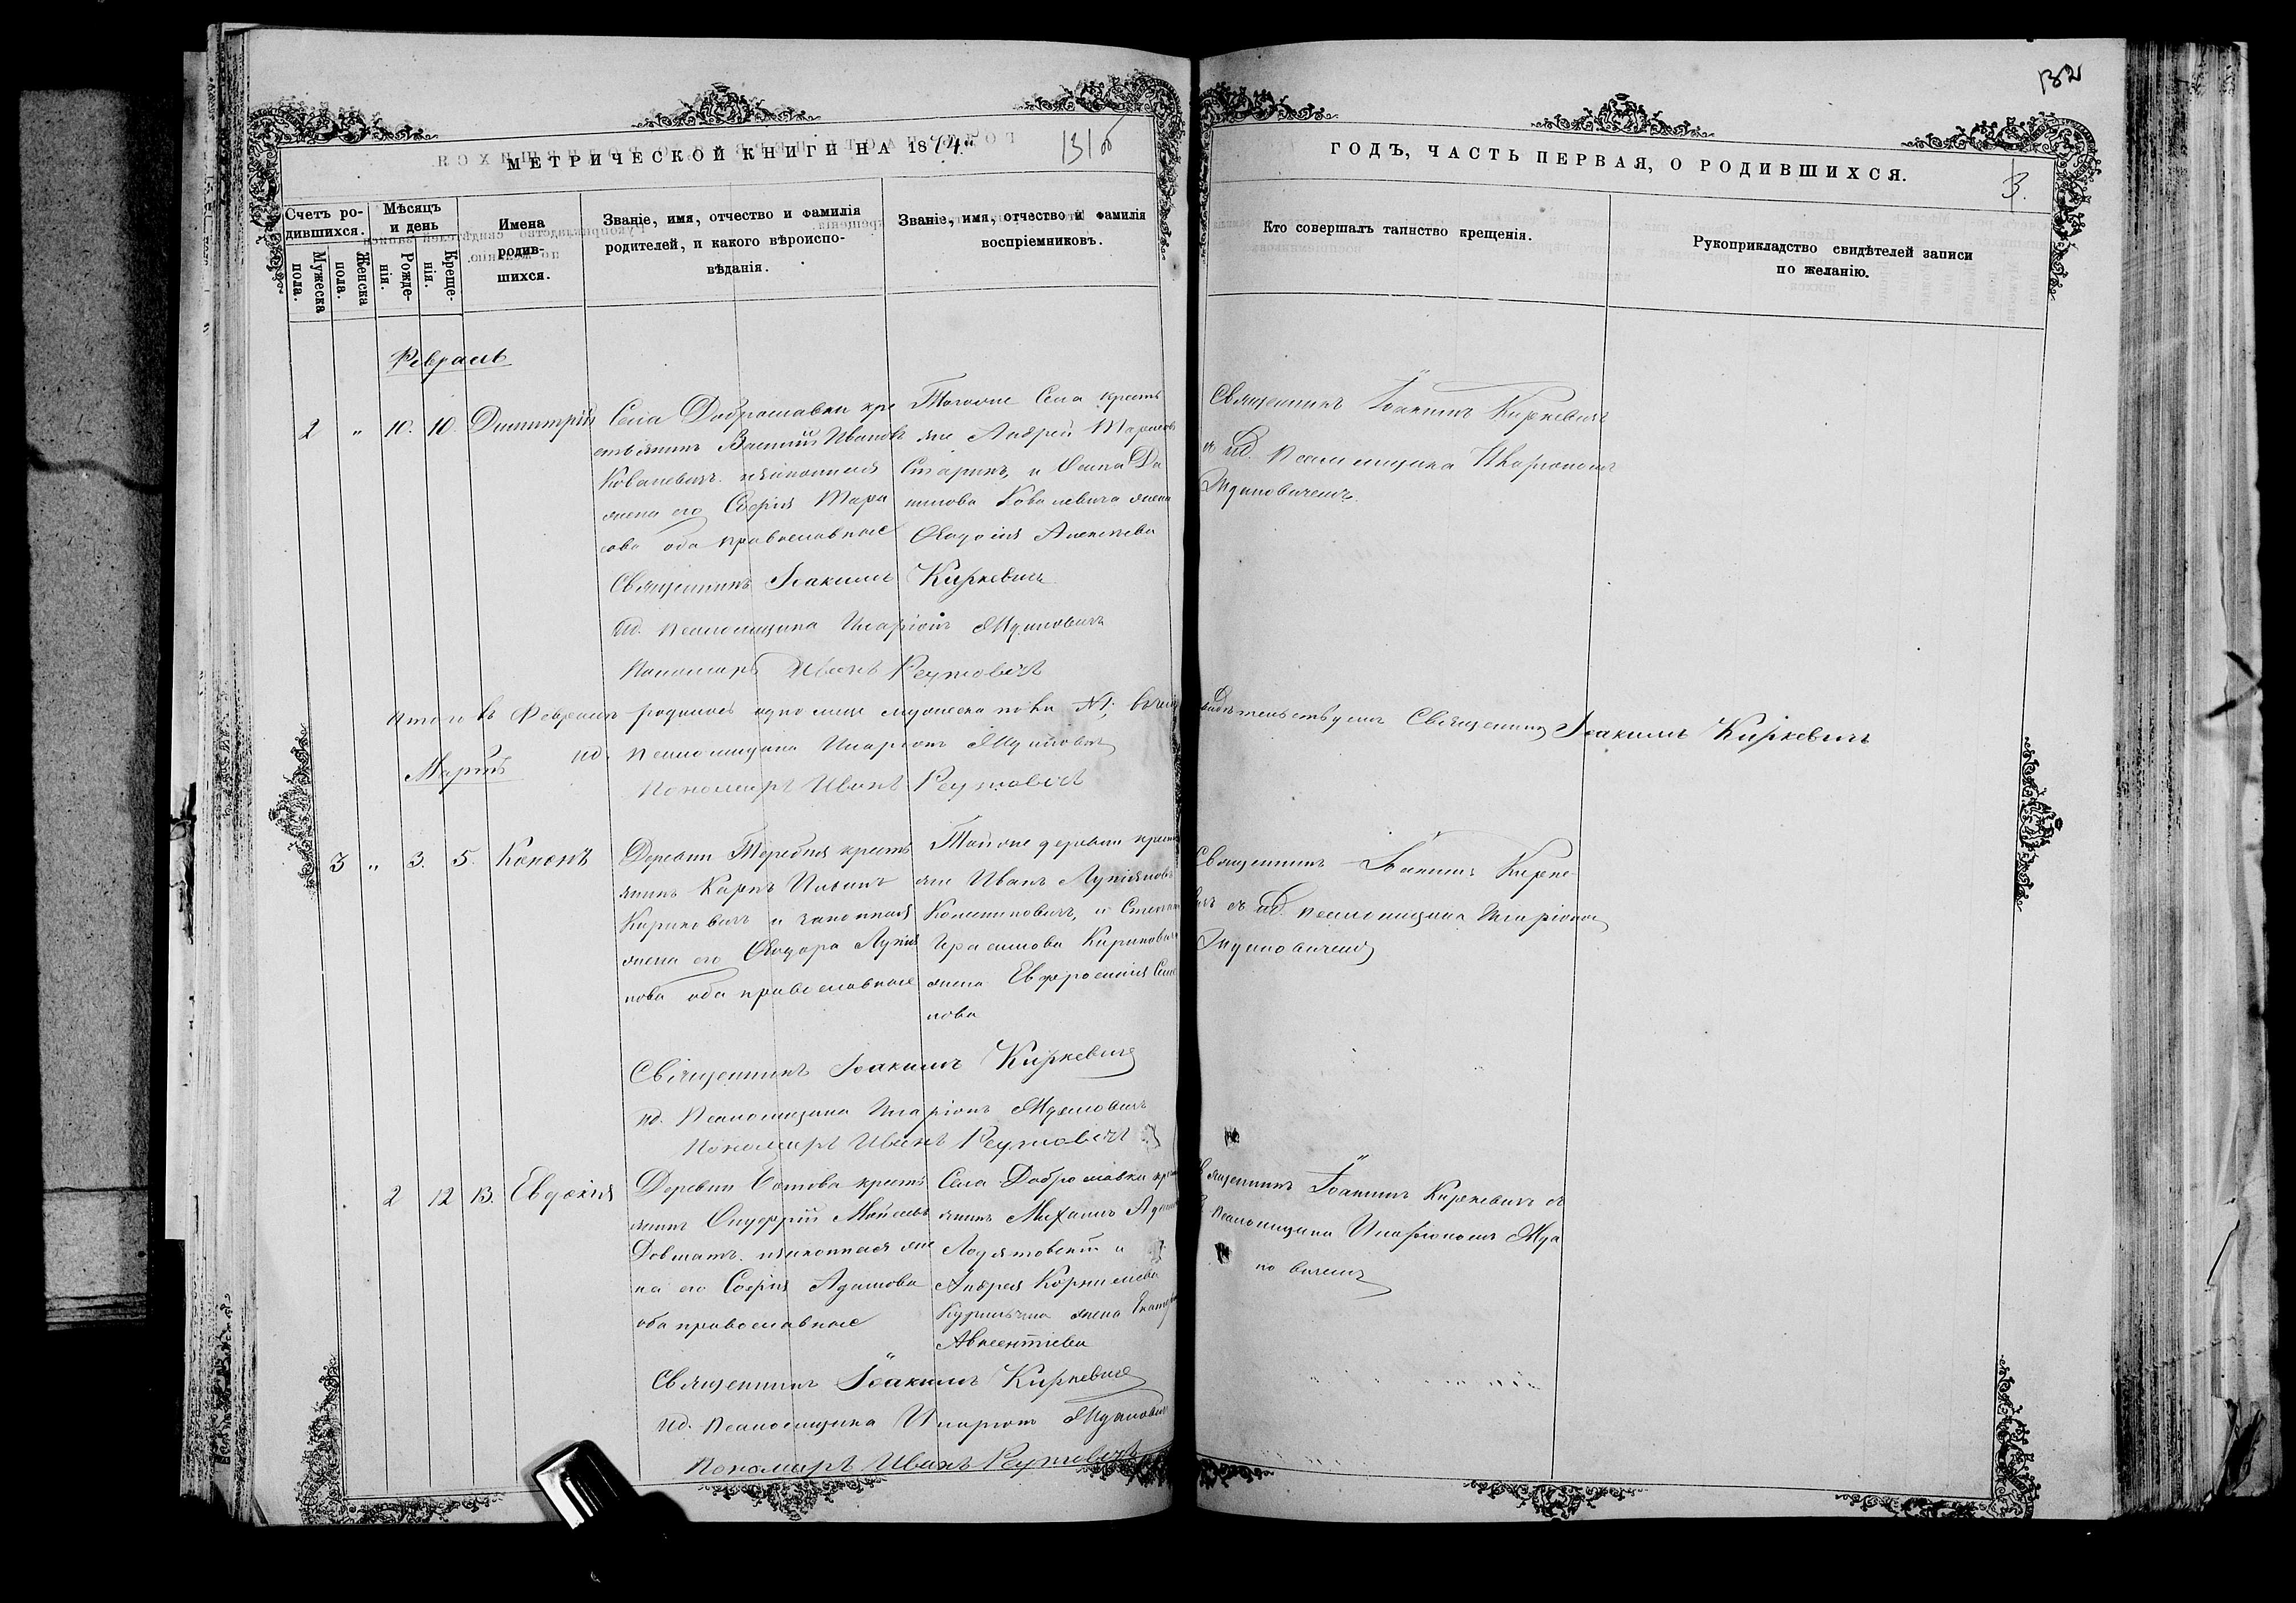 132
МЕТРИЧЕСКОЙ КНИГИ НА 1874й
131об
ГОДЪ, ЧАСТЬ ПЕРВАЯ, О РОДИВШИХСЯ.
3.
Счетъ ро-
дившихся.
Мужеска
пола.
Женска
пола.
Мѣсяцъ
и день
Рожде-
нія.
Креще-
нія.
Имена
родив-
шихся.
Званіе, имя, отчество и фамилія
родителей, и какого вѣроиспо-
вѣданія.
Званіе, имя, отчество и фамилія
воспріемниковъ.
Кто совершалъ таинство крещенія.
Рукоприкладство свидѣтелей записи
по желанію.
Февраль
2 " 10. 10. Димитрій
Села Доброславки кре
стьянинъ Василій Ивановъ
Ковалевичъ и законная
жена его Софія Тара
сова оба православные
Тогоже Села кресть
яне Андрей
и
Ковалевича жена
Алексѣева
Священникъ Іоакимъ Киркевичъ
съ ид. псаломщика Иларіономъ
Ждановичемъ.
Священникъ Іоакимъ Киркевичъ
ид. псаломщика Иларіонъ Ждановичъ
Пономарь Иванъ Реутовичъ
Итого въ Февралѣ родилось одно лице мужеска пола №1, въ чемъ
свидѣтельствуемъ Священникъ Іоакимъ Киркевичъ
ид. псаломщика Иларіонъ Ждановичъ
Пономарь Иванъ Реутовичъ
Мартъ
3 " 3. 5. Кононъ
Деревни Теребня кресть
янинъ Карпъ
Кириковичъ и законная
жена его Ѳеодора Лукія
нова оба православные
Тойже деревни кресть
яне Иванъ Лукіяновъ
и
Кирикович
жена Евфросинія Семе
нова
Священникъ Іоакимъ Кирке-
вичъ съ ид. псаломщика Иларіоном
Ждановичемъ
Священникъ Іоакимъ Киркевичъ
ид. псаломщика Иларіонъ Ждановичъ
Пономарь Иванъ Реутовичъ
2 12 13. Евдокія
Деревни кресть
янинъ Онуфрій
и законная же
на его Софія Адамова
оба православные
Села Доброславки кре
янинъ Михаилъ
и
Андрея Корнилова
жена
Авксентіева
Священникъ Іоакимъ Киркевичъ съ
псаломщика Иларіономъ Жда
новичемъ
Священникъ Іоакимъ Киркевичъ
ид. псаломщика Иларіонъ Ждановичъ
Пономарь Иванъ Реутовичъ